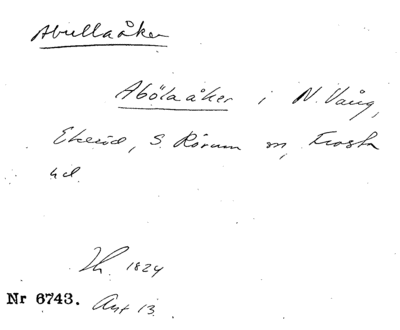 Abullaåker
Abölaåker i N. Vång,
Ekeröd, S. Rörum m, Frosta
hd.
Th. 1824
Nr 6743. Ant 13.